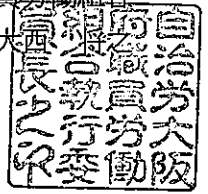 大西
自治労大阪
府職員労働
組合執行委
員長之印